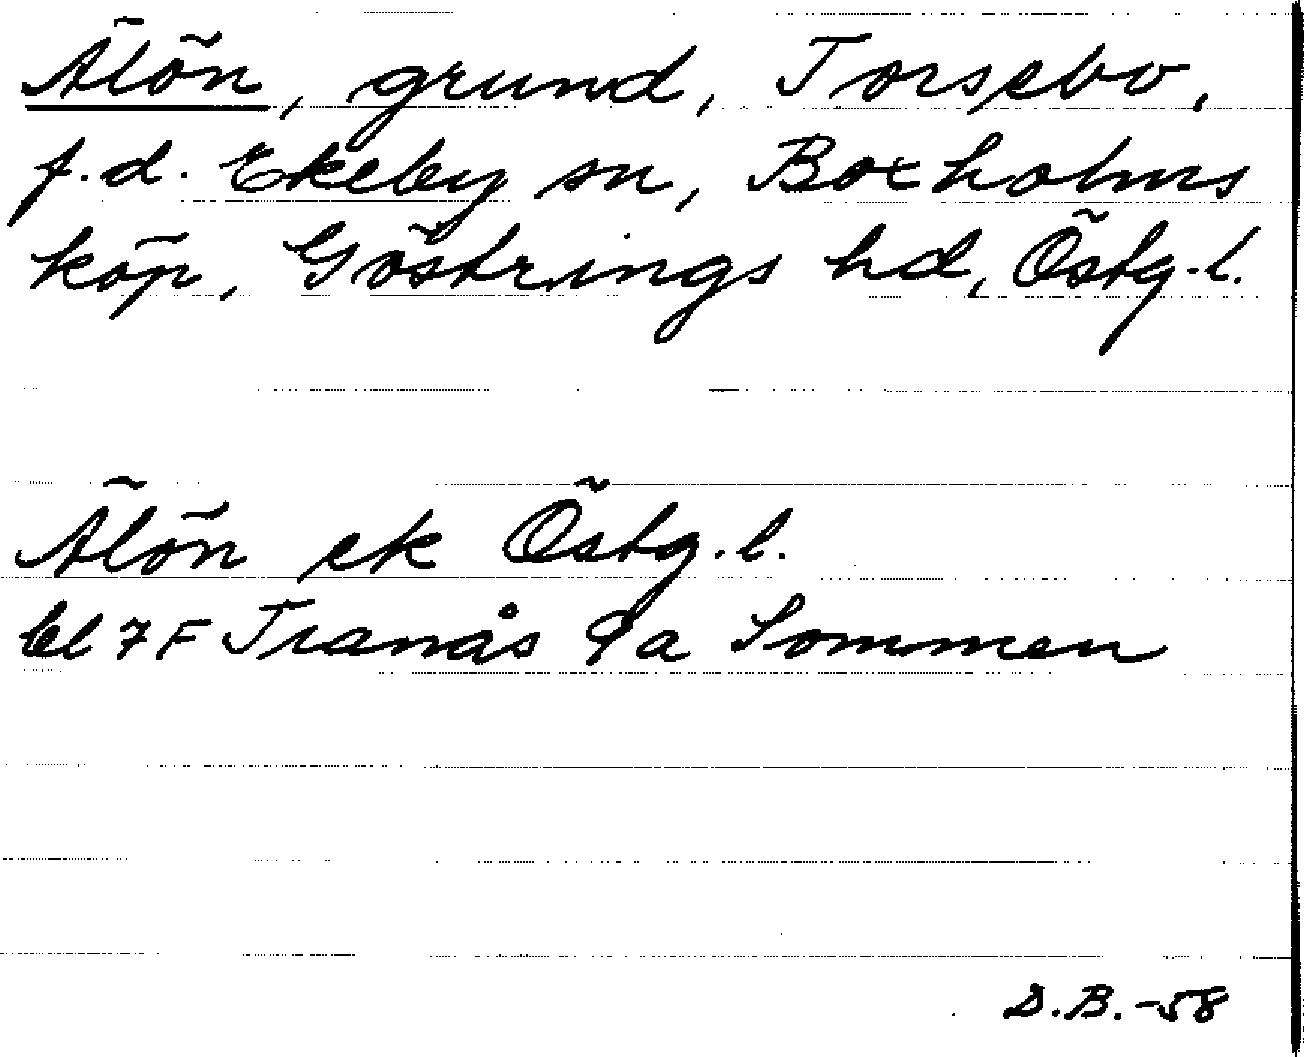 Älön, grund, Torsebo,
f.d. Ekeby sn, Boxholms
köp, Göstrings hd, Östg.l.
Älön ek Östg.l.
bl 7F Tranås 9a Sommen
D.B.-58